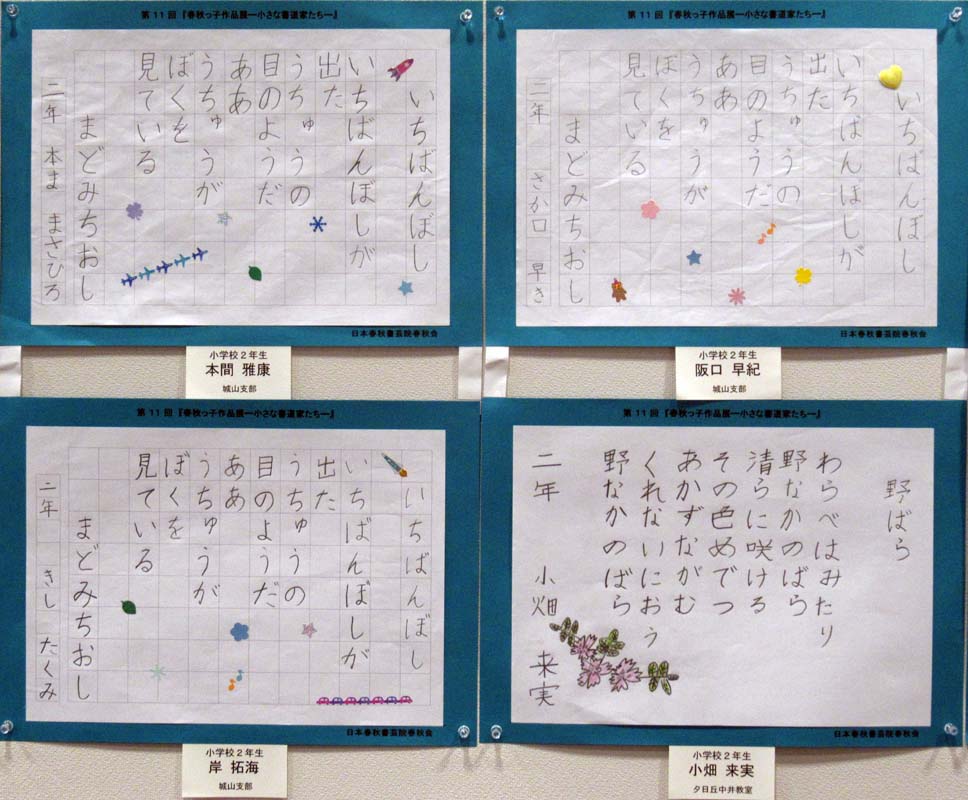 第11回『春秋っ子作品展―小さな書道家たち―』
いちばんぼし
いちばんぼしが
出た
うちゅうの
目のようだ
ああ
うちゅうが
ぼくを
見ている
まどみちおし
二年 本ま まさひろ
日本春秋書芸院春秋会
小学校2年生
本間 雅康
城山支部
第11回『春秋っ子作品展―小さな書道家たち―』
いちばんぼし
いちばんぼしが
出た
うちゅうの
目のようだ
ああ
うちゅうが
ぼくを
見ている
まどみちおし
二年 さか口 早き
日本春秋書芸院春秋会
小学校2年生
阪口 早紀
城山支部
第11回『春秋っ子作品展―小さな書道家たち―』
いちばんぼし
いちばんぼしが
出た
うちゅうの
目のようだ
ああ
うちゅうが
ぼくを
見ている
まどみちおし
二年 きし たくみ
日本春秋書芸院春秋会
小学校2年生
岸 拓海
城山支部
第11回『春秋っ子作品展―小さな書道家たち―』
野ばら
わらべはみたり
野なかのばら
清らに咲ける
その色めでつ
あかずながむ
くれないにおう
野なかのばら
二年 小畑 来実
日本春秋書芸院春秋会
小学校2年生
小畑 来実
夕日丘中井教室